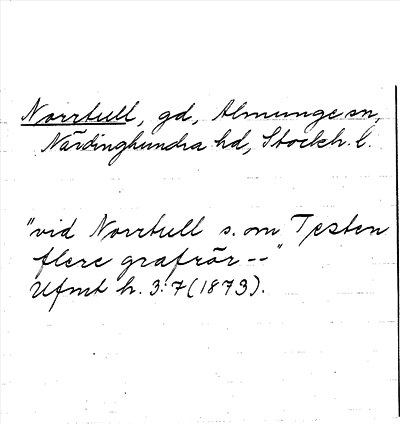 Norrtull, gd, Almunge sn,
Närdinghundra hd, Stockh. l.
"vid Norrtull s. om Testen
flere grafrör --"
Ufmt h. 3:7 (1873).